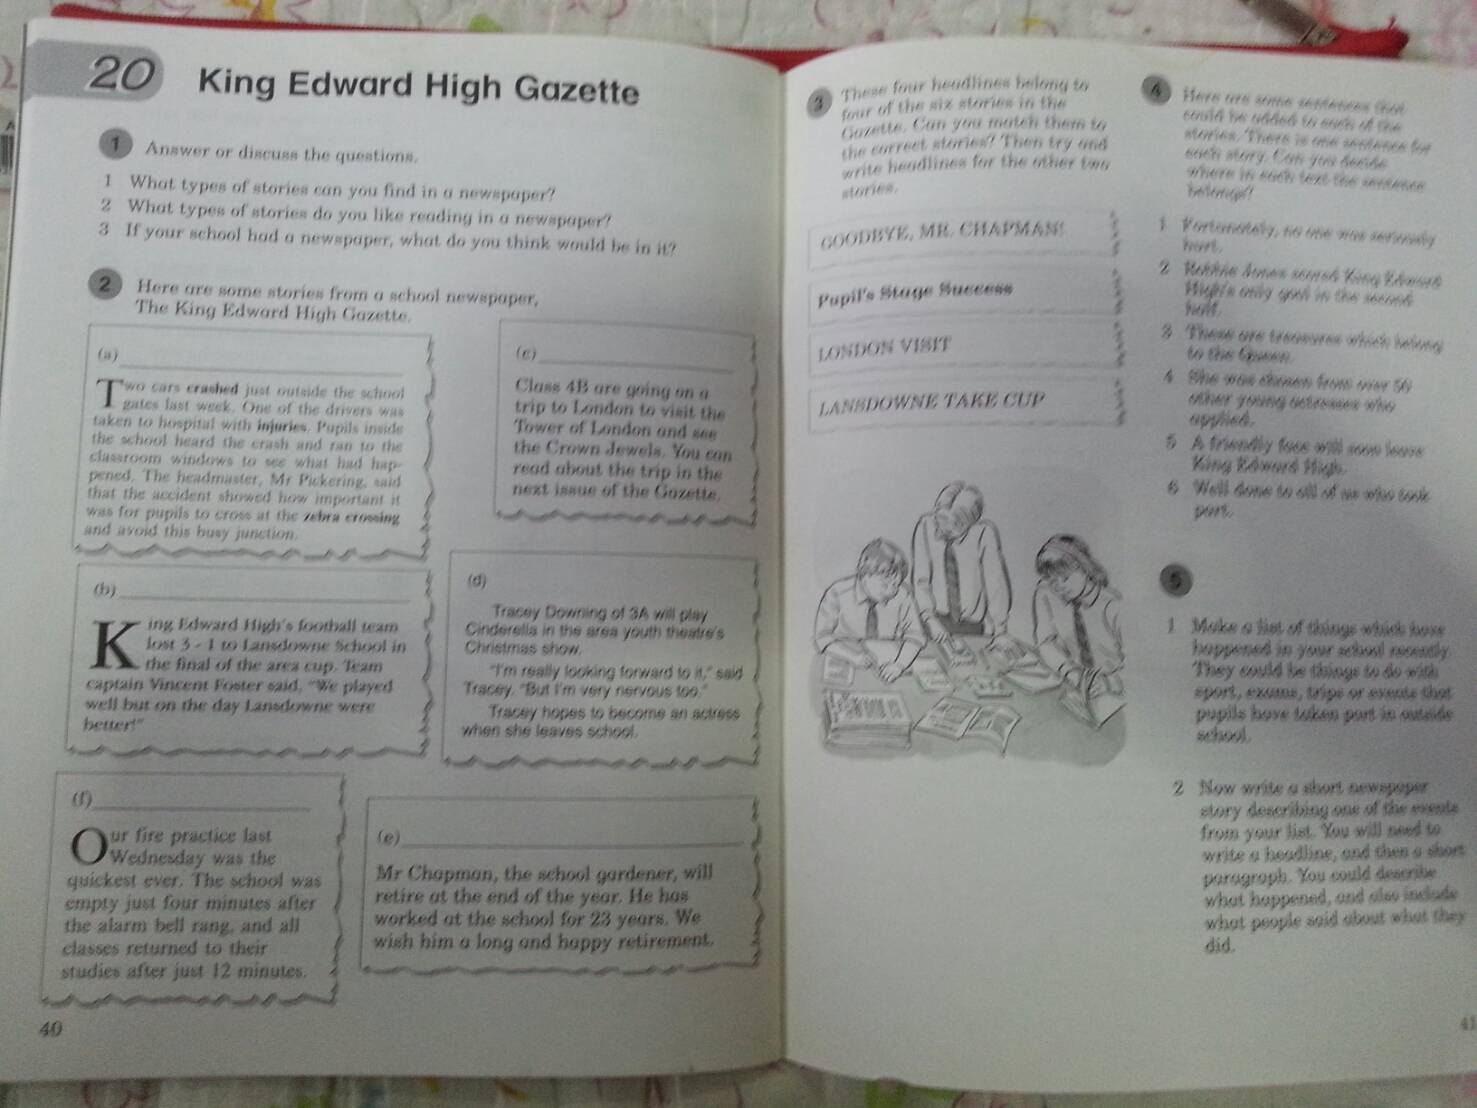 20 King Edward High Gazette
1 Answer or discuss the questions.
1 What types of stories can you find in a newspaper?
2 What types of stories do you like reading in a newspaper?
3 If your school had a newspaper, what do you think would be in it?
2 Here are some stories from a school newspaper,
The King Edward High Gazette.
(a)
Two cars crashed just outside the school
gates last week. One of the drivers was
taken to hospital with injuries. Pupils inside
the school heard the crash and ran to the
classroom windows to see what had hap-
pened. The headmaster, Mr Pickering, said
that the accident showed how important it
was for pupils to cross at the zebra crossing
and avoid this busy junction.
(b)
King Edward High's football team
lost 3 - 1 to Lansdowne School in
the final of the area cup. Team
captain Vincent Foster said, "We played
well but on the day Lansdowne were
better!"
(f)
Our fire practice last
Wednesday was the
quickest ever. The school was
empty just four minutes after
the alarm bell rang, and all
classes returned to their
studies after just 12 minutes.
40
(c)
Class 4B are going on a
trip to London to visit the
Tower of London and see
the Crown Jewels. You can
read about the trip in the
next issue of the Gazette.
(d)
Tracey Downing of 3A will play
Cinderella in the area youth theatre's
Christmas show.
"I'm really looking forward to it," said
Tracey. "But I'm very nervous too."
Tracey hopes to become an actress
when she leaves school.
(e)
Mr Chapman, the school gardener, will
retire at the end of the year. He has
worked at the school for 23 years. We
wish him a long and happy retirement.
3 These four headlines belong to
four of the six stories in the
Gazette. Can you match them to
the correct stories? Then try and
write headlines for the other two
stories.
GOODBYE, MR. CHAPMAN!
Pupil's Stage Success
LONDON VISIT
LANSDOWNE TAKE CUP
4 Here are some sentences that
could be added to each of the
stories. There is one sentence for
each story. Can you decide
where in each text the sentence
belongs?
1 Fortunately, no one was seriously
hurt.
2 Robbie Jones scored King Edward
High's only goal in the second
half.
3 These are treasures which belong
to the Queen.
4 She was chosen from over 50
other young actresses who
applied.
5 A friendly face will soon leave
King Edward High.
6 Well done to all of us who took
part.
5
1 Make a list of things which have
happened in your school recently.
They could be things to do with
sport, exams, trips or events that
pupils have taken part in outside
school.
2 Now write a short newspaper
story describing one of the events
from your list. You will need to
write a headline, and then a short
paragraph. You could describe
what happened, and also include
what people said about what they
did.
41